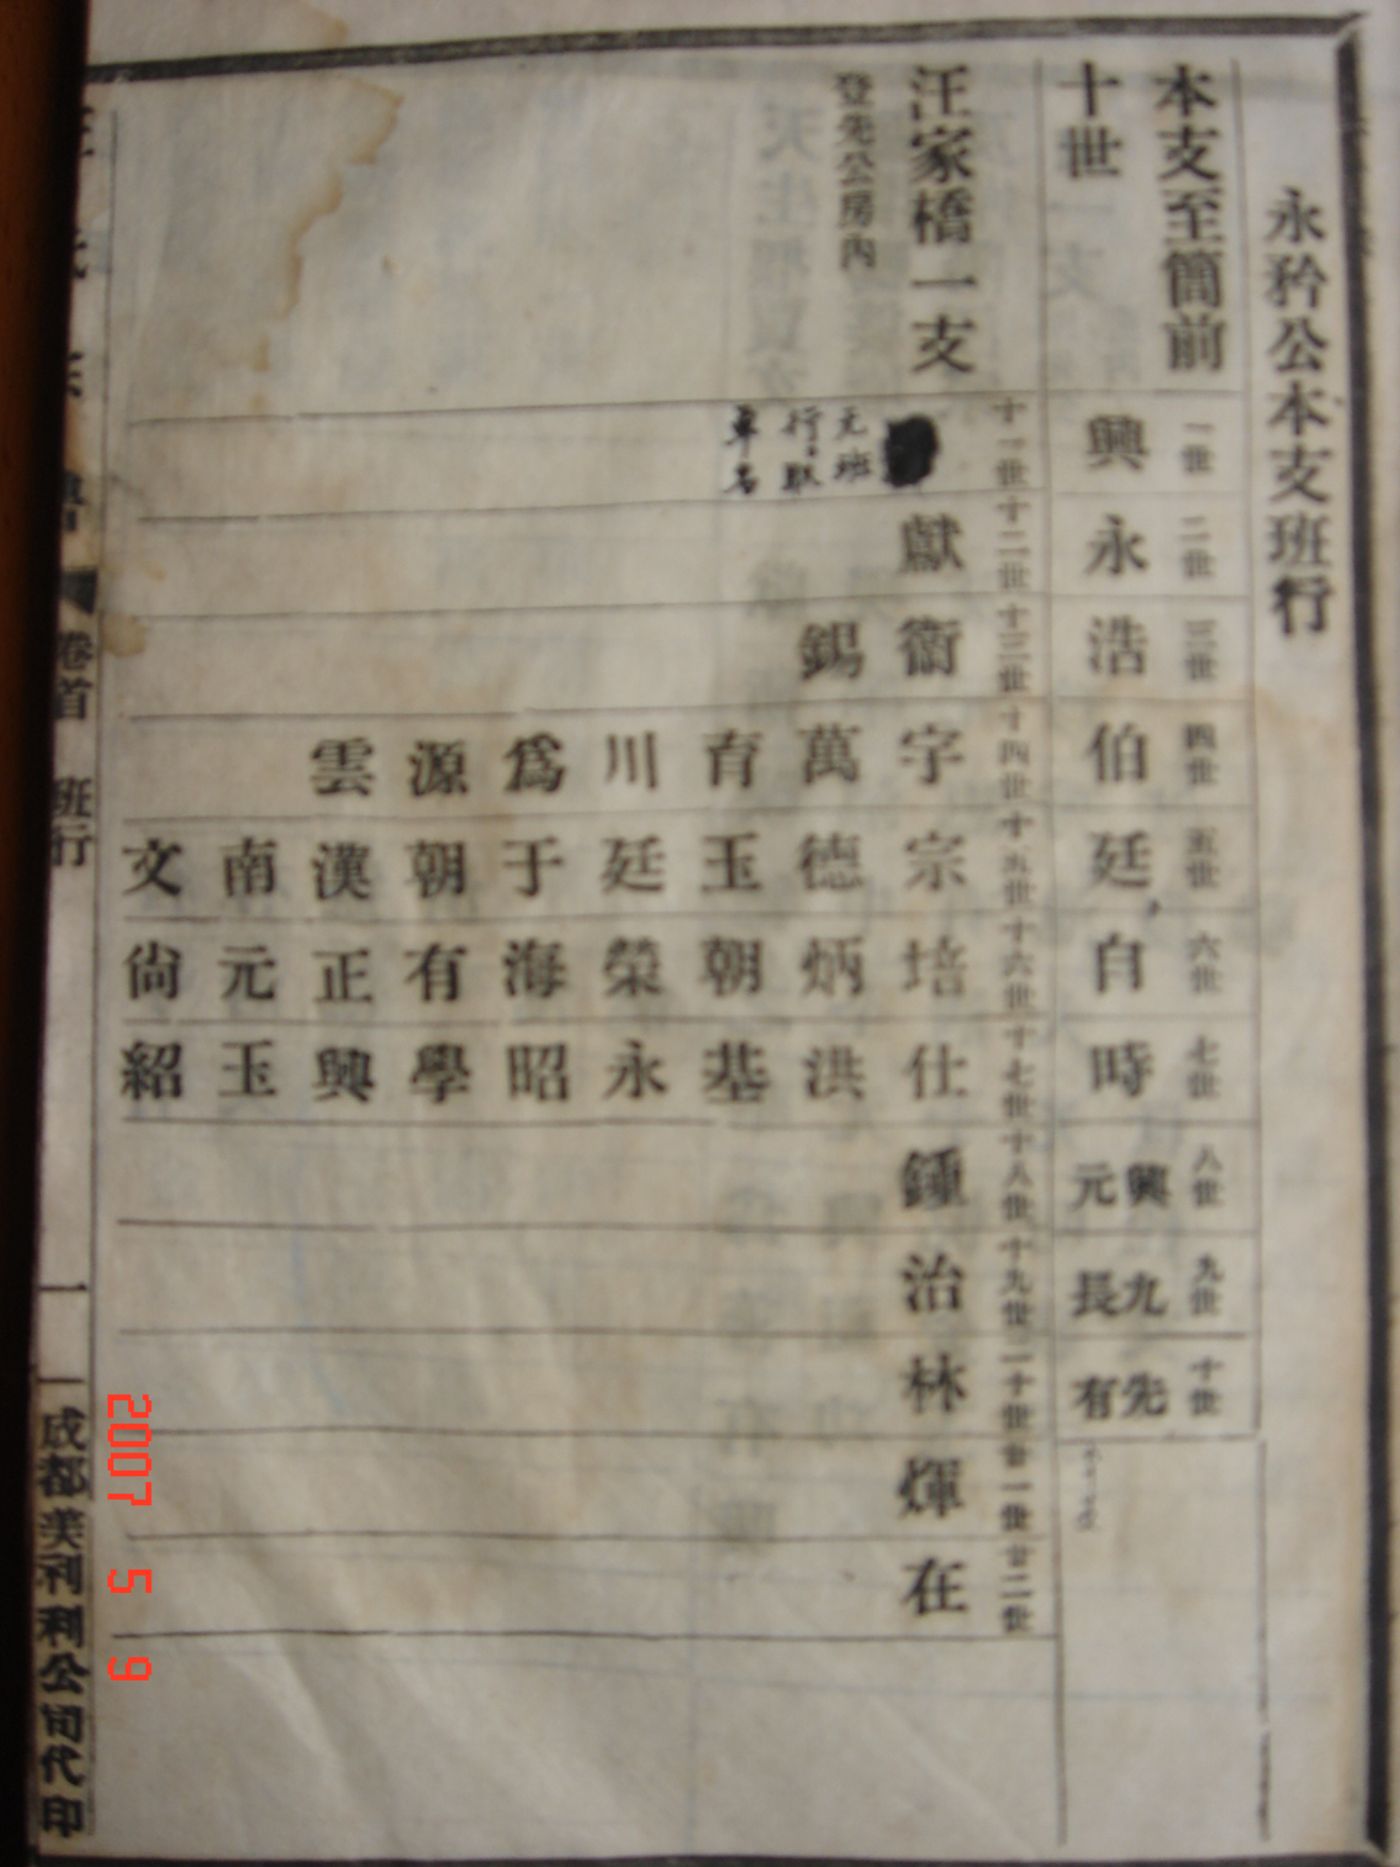 永矜公本支班行
本支至簡前
十世
一世
二世
三世
四世
五世
六世
七世
八世
九世
十世
興
永
浩
伯
廷
自
時
興元
九長
先有
汪家橋一支
登先公房內
十一世
十二世
十三世
十四世
十五世
十六世
十七世
十八世
十九世
二十世
廿一世
廿二世
无班
行取
單名
獻
衢 錫
字 萬 育 川 爲 源 雲
宗 德 玉 廷 于 朝 漢 南 文
培 炳 朝 榮 海 有 正 元 尙
仕 洪 基 永 昭 學 興 玉 紹
鍾
治
林
煇
在
卷首 班行
一
成都美利利公司代印
2007 5 9